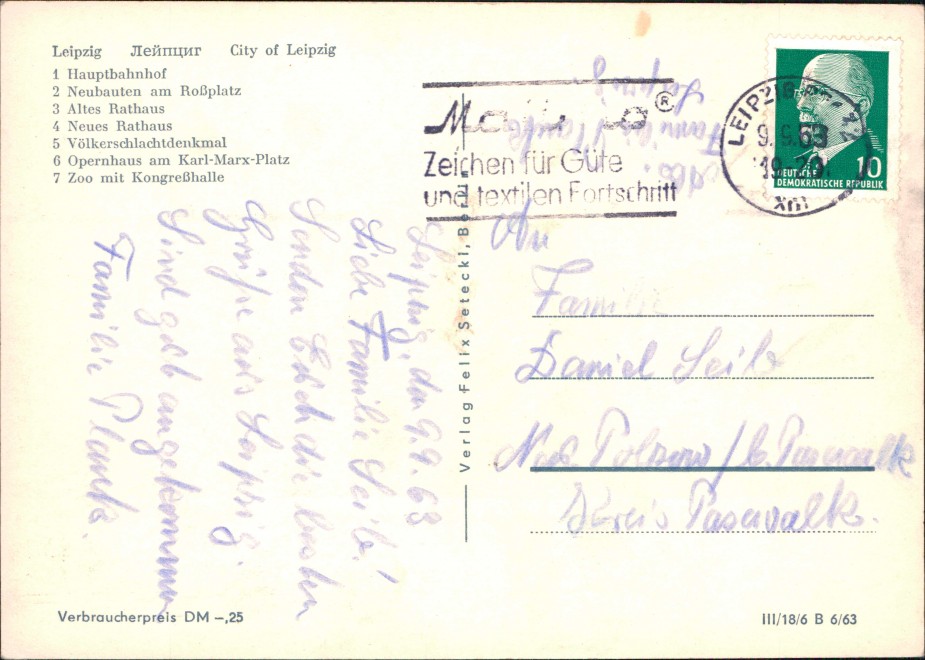 Leipzig Лейпциг City of Leipzig
1 Hauptbahnhof
2 Neubauten am Roßplatz
3 Altes Rathaus
4 Neues Rathaus
5 Völkerschlachtdenkmal
6 Opernhaus am Karl-Marx-Platz
7 Zoo mit Kongreßhalle
®
Zeichen für Güte
und textilen Fortschritt
LEIPZIG
9.9.63
DEUTSCHE
DEMOKRATISCHE REPUBLIK
10
Abs.
Familie
Leipzig
Leipzig, den 9.9.63
Liebe Familie Seib!
Senden Euch die besten
Grüße aus Leipzig
Sind gut angekommen
Familie Plank.
Verlag Felix Setecki, Berlin
An
Familie
Daniel Seib
Polzow / b. Pasewalk
Kreis Pasewalk.
Verbraucherpreis DM -,25
III/18/6 B 6/63